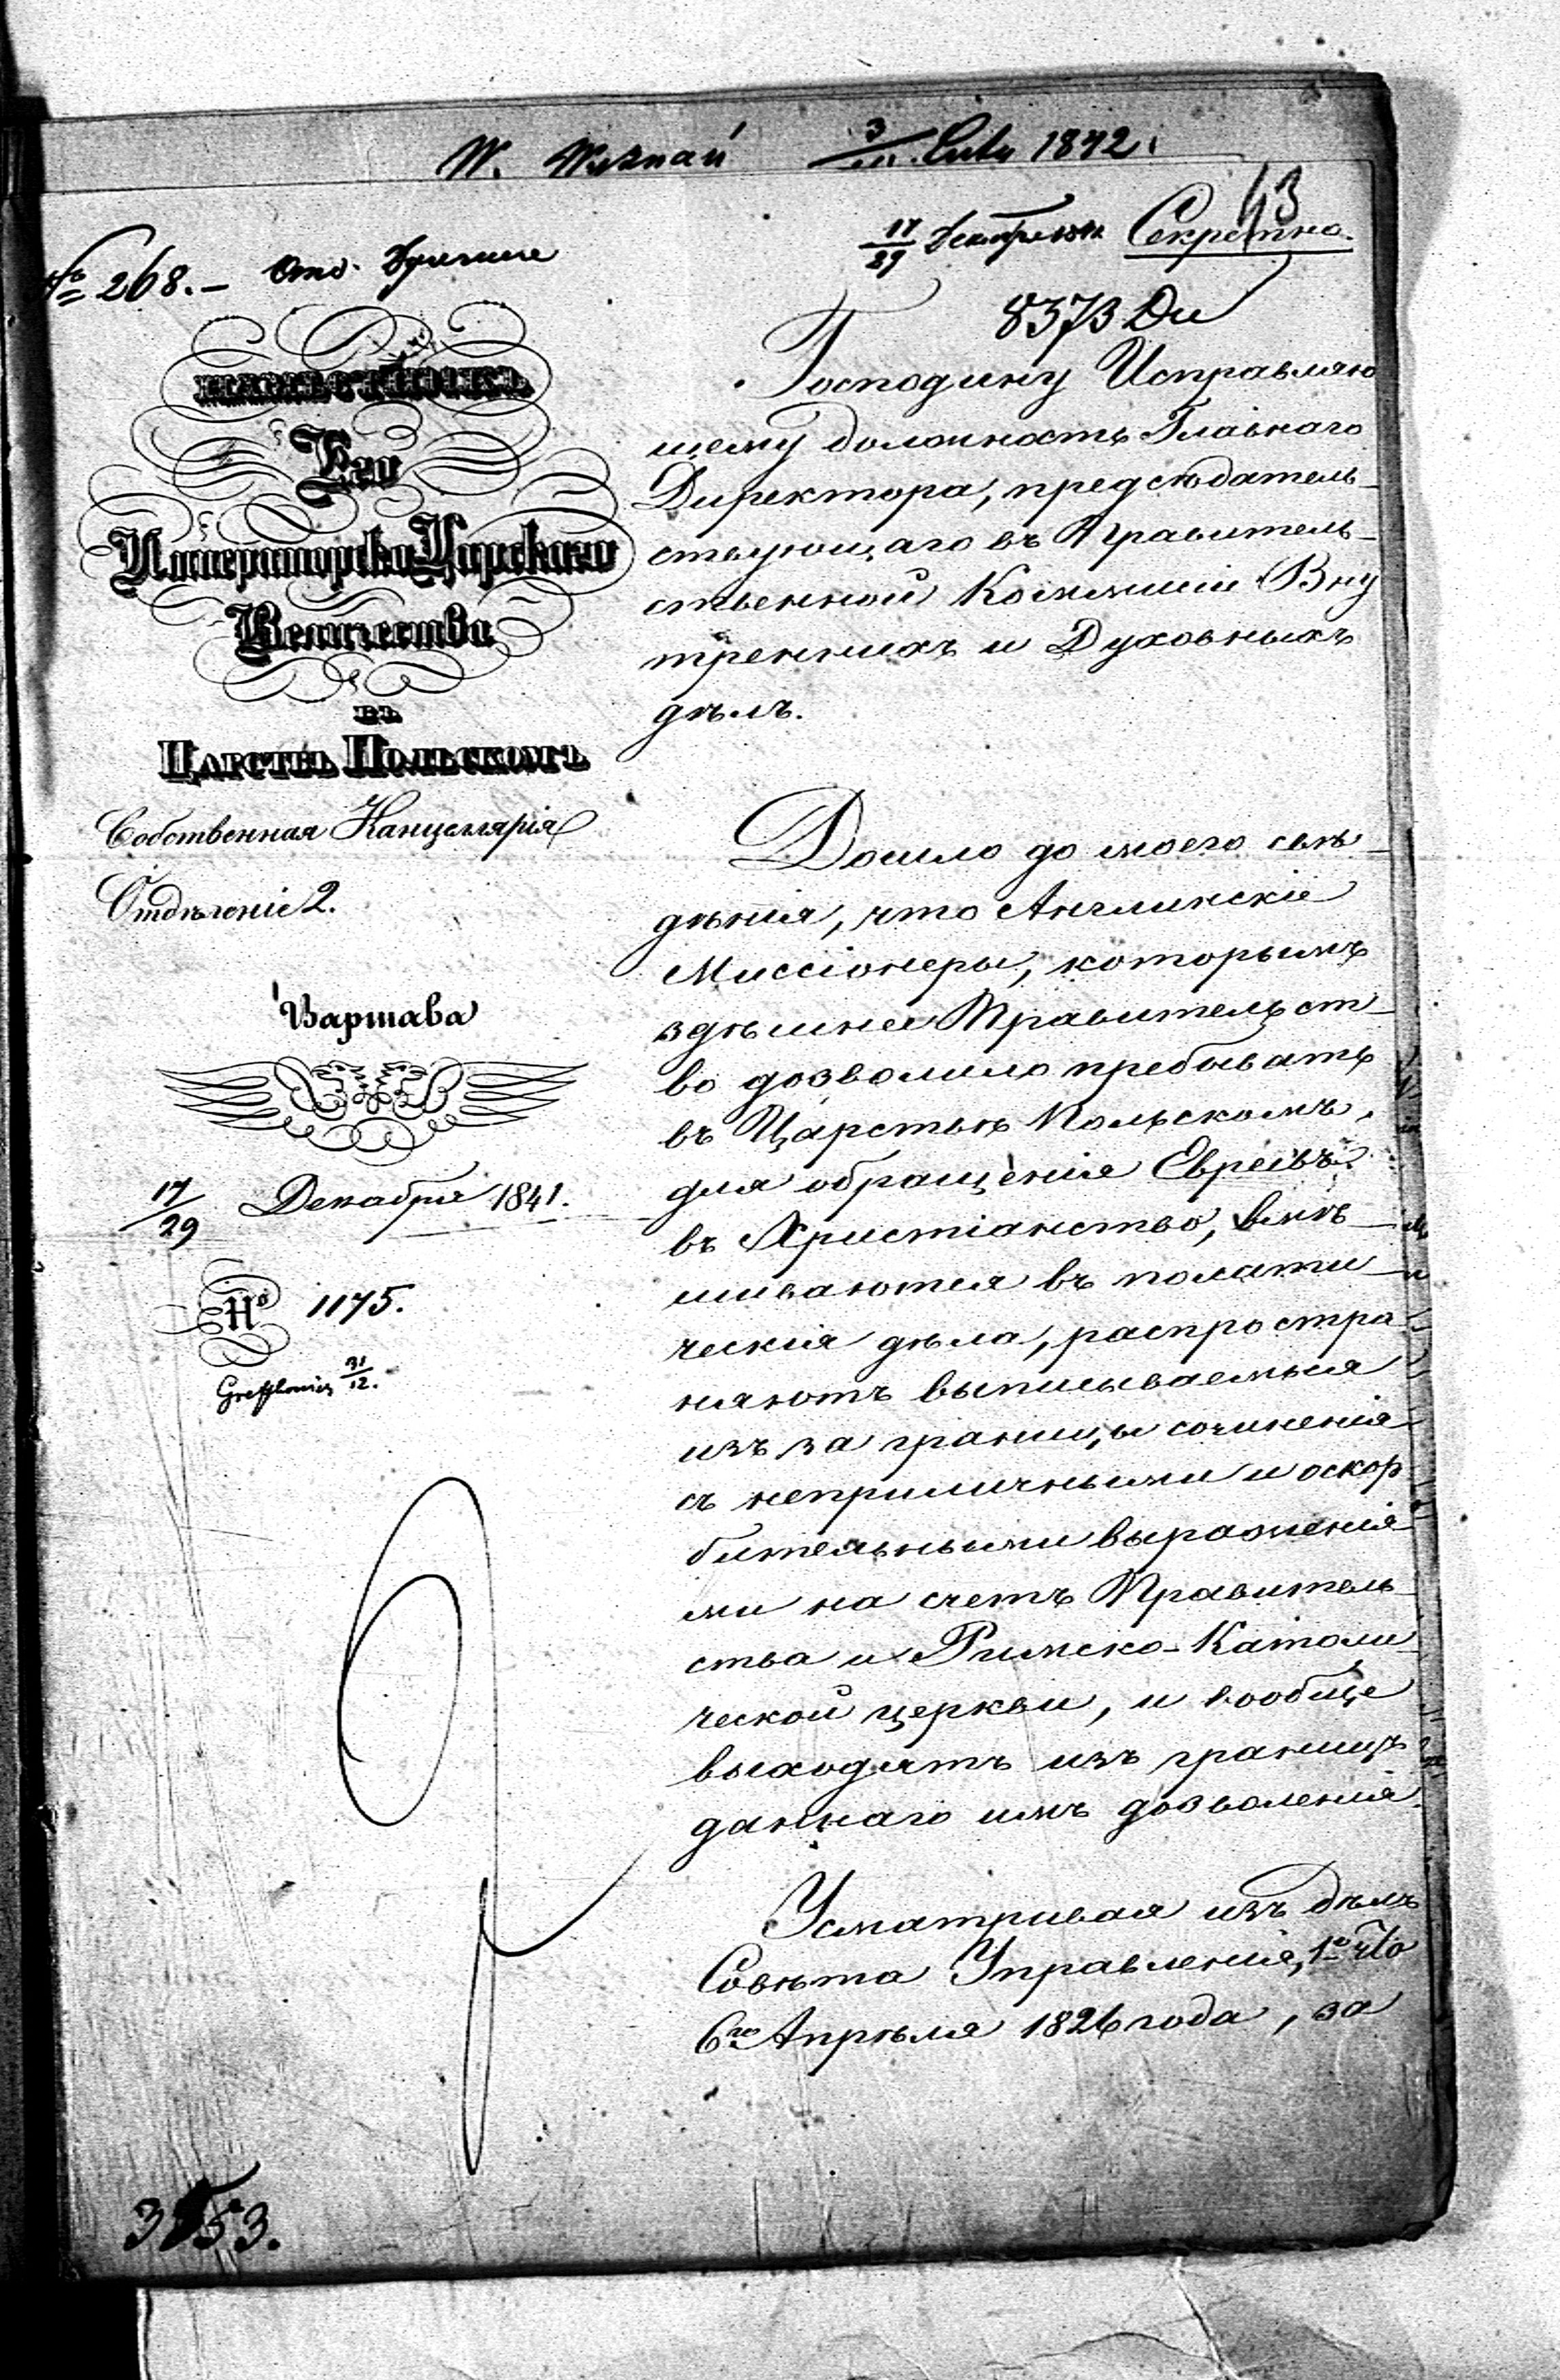 W. Wyznań 3/ Luty 1842.
43
17/29 Декабря 1841 Секретно.
№ 268.—
8373
НАМѢСТНИКЪ
Его
Императорско Царскаго
Величества
въ
Царствѣ Польскомъ
Собственная Канцелярія
Отдѣленіе 2.
Варшава
17/29 Декабря 1841.
№ 1175.
31/12.
Господину Исправляю
щему должность Главнаго
Директора, предсѣдатель-
ствующаго въ Правитель-
ственной Коммисіи Вну
треннихъ и Духовныхъ
дѣлъ.
Дошло до моего свѣ-
дѣнія, что Англинскіе
Миссіонеры, которымъ
здѣшнее Правительст-
во дозволило пребывать
въ Царствѣ Польскомъ,
для обращенія Евреевъ
въ Христіанство, вмѣ-
шиваются въ полити-
ческія дѣла, распростра
няютъ выписываемыя
изъ за границы сочиненія
съ неприличными и оскор
бительными выраженія-
ми на счетъ Правитель-
ства и Римско-Католи-
ческой церкви, и вообще
выходятъ изъ границъ
даннаго имъ дозволенія.
Усматривая изъ дѣлъ
Совѣта Управленія, 1е что
6го Апрѣля 1826 года, за
3153.